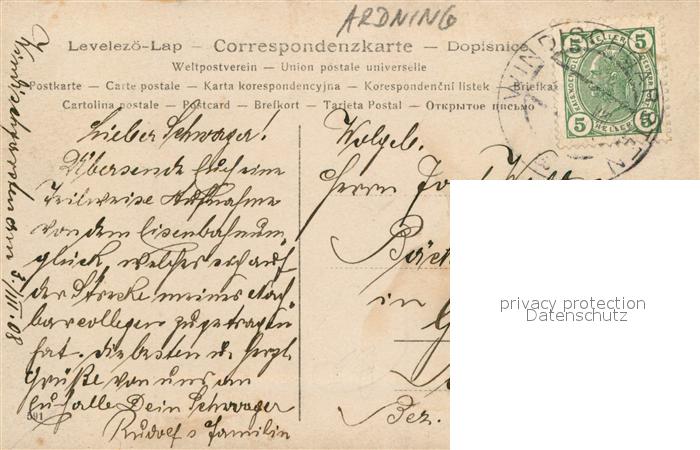 ARDNING
Levelező-Lap — Correspondenzkarte — Dopisnice
Weltpostverein — Union postale universelle
Postkarte — Carte postale — Karta korespondencyjna — Korespondenční lístek — Briefka
Cartolina postale — Postcard — Brefkort — Tarjeta Postal — Открытое письмо
5 HELLER 5
5 HELLER 5
WINDISCHGARSTEN
Windischgarsten am 3/III 08
Lieber Schwager!
Übersende Euch eine
teilweise Aufnahme
von dem Eisenbahnun
glück, welches sich auf
der Strecke meines Nach
barcollegen zugetragen
hat. Die besten u. herzl.
Grüße von uns an
Euch alle Dein Schwager
Rudolf s Familie
591
Wolgeb.
Herrn Jos
Bäck
in
G
Bez.
privacy protection
Datenschutz